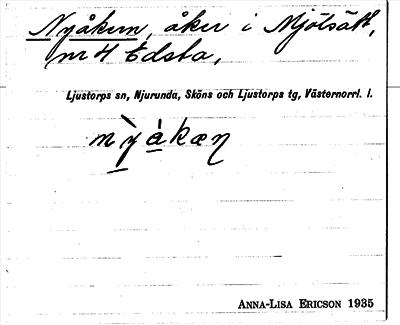 Nyåkern, åker i Mjölsätt,
nr 4 Edsta,
Ljustorps sn, Njurunda, Sköns och Ljustorps tg, Västernorrl. l.
ANNA-LISA ERICSON 1935